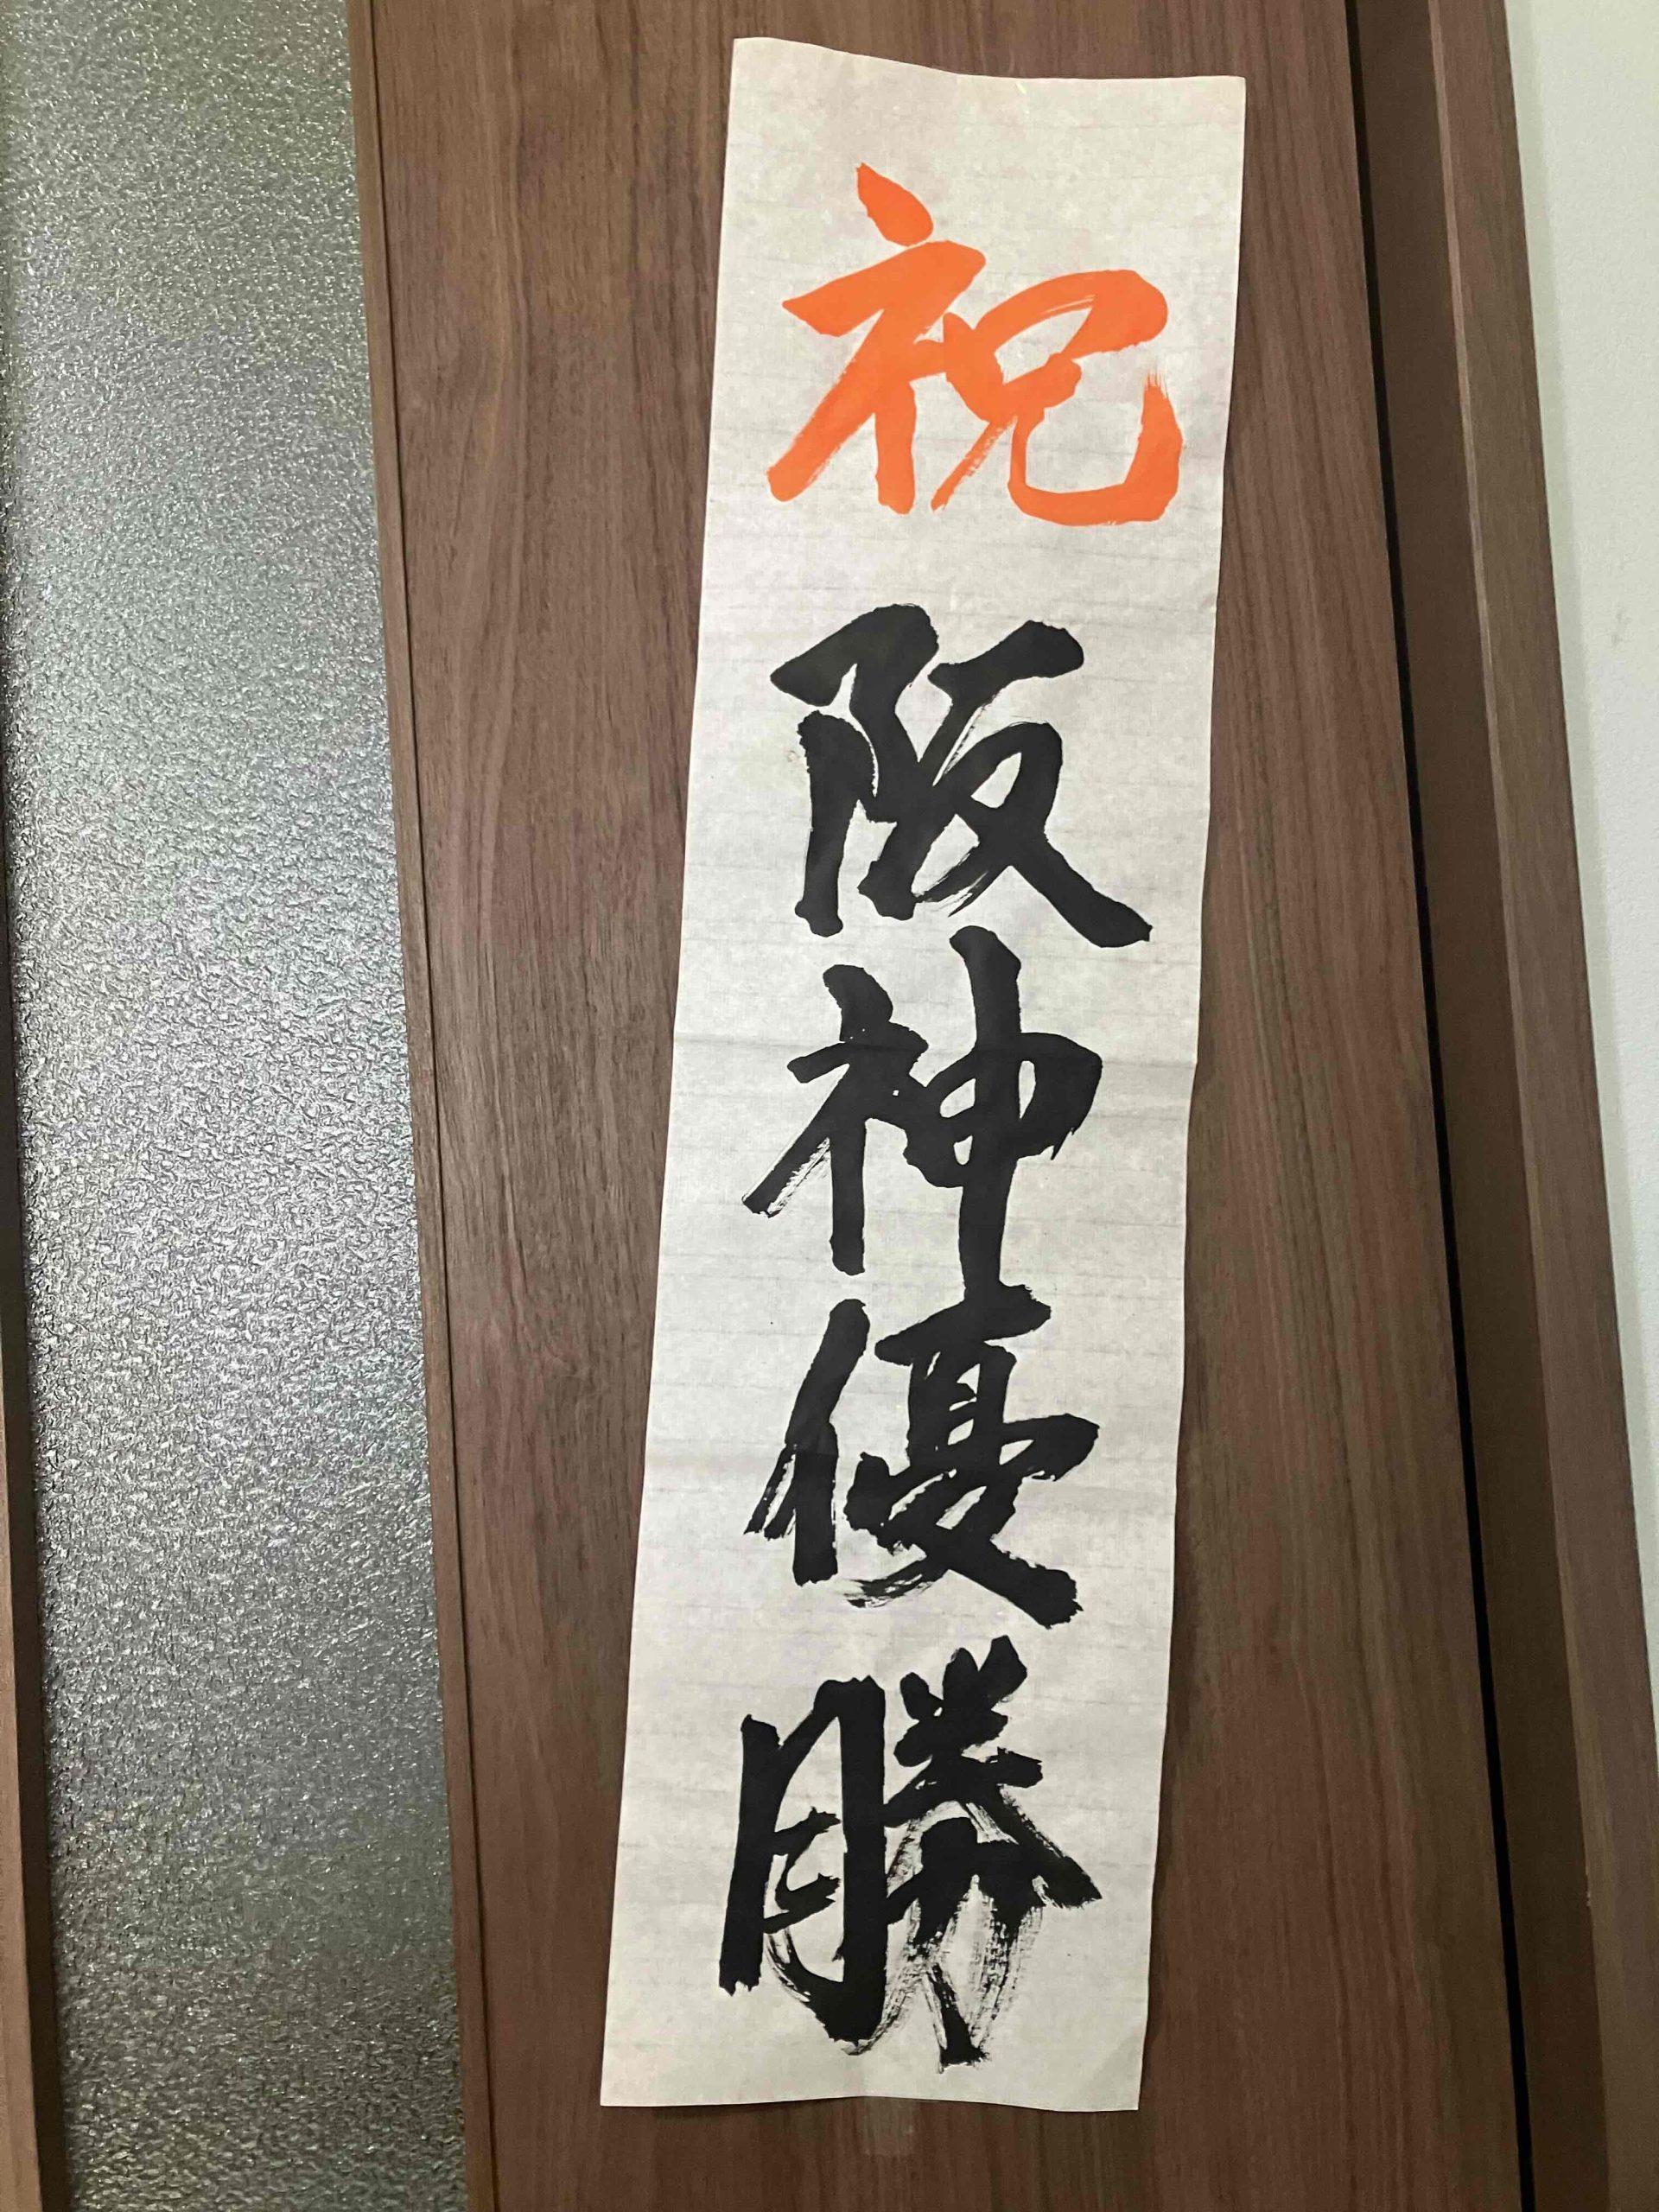 祝 阪神優勝